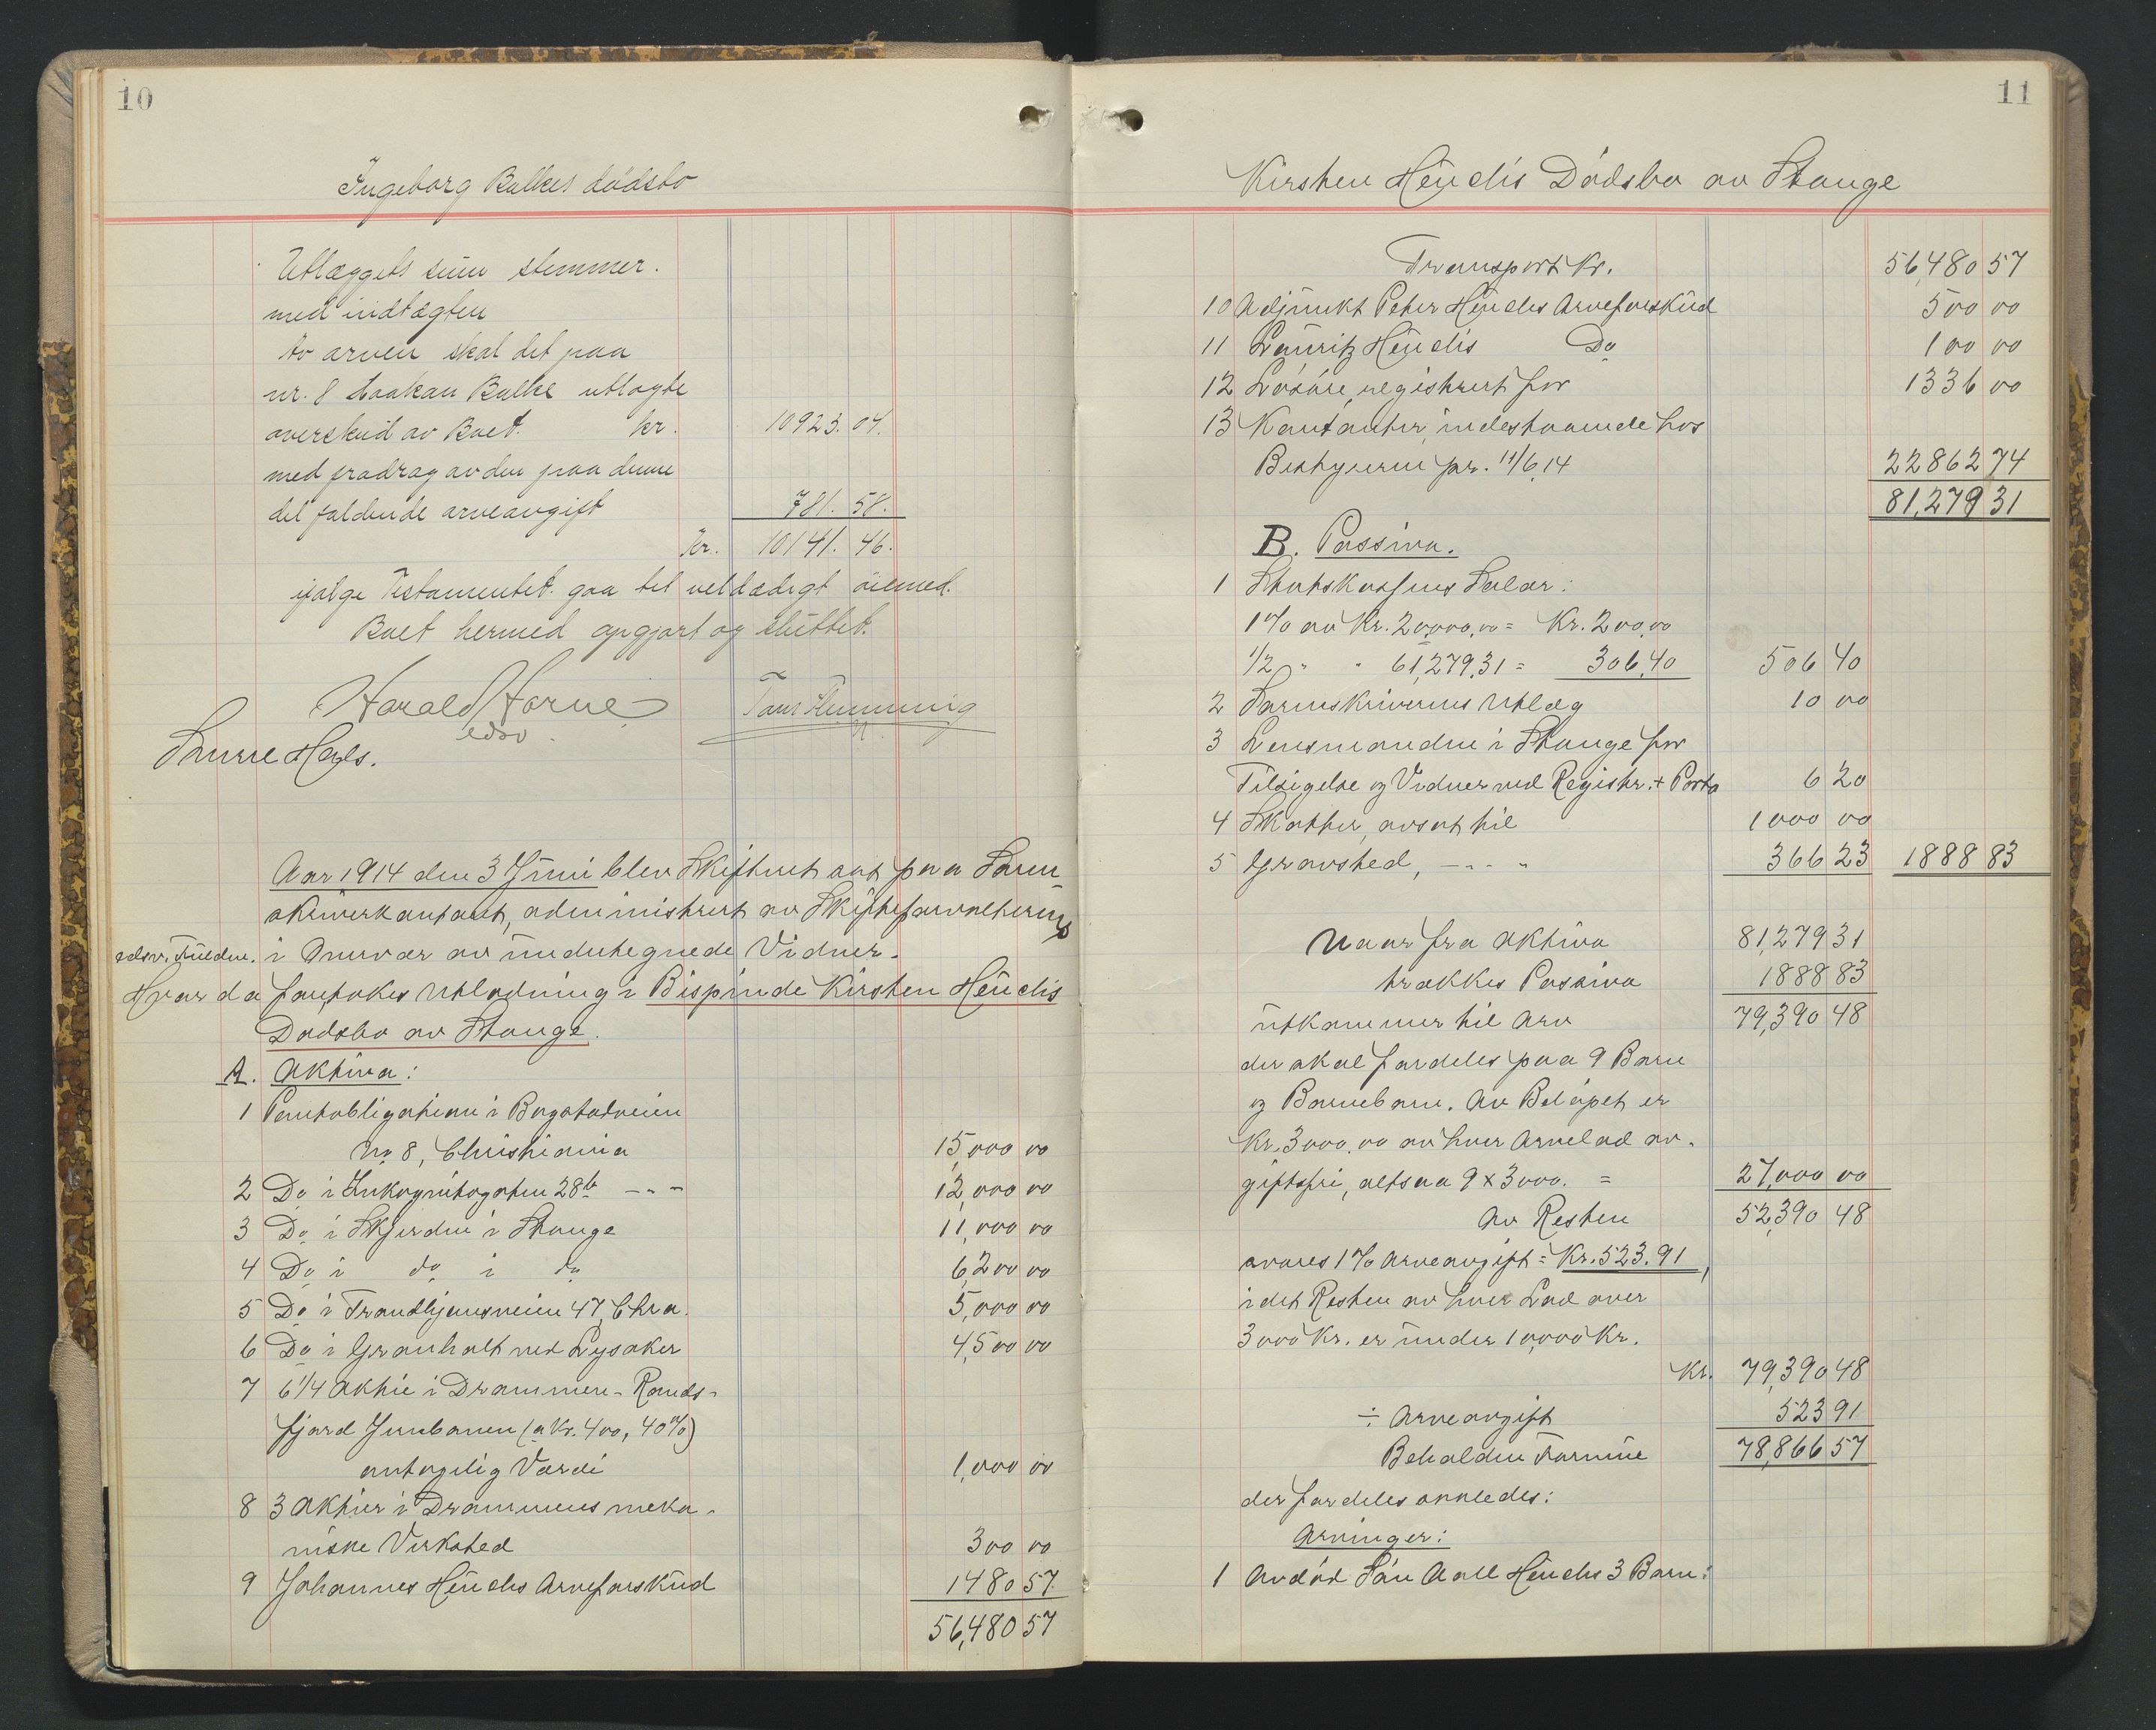 10
Ingeborg Balkes dødsbo
Utlæggets sum stemmer.
med indtægten
Av arven skal det paa
nr. 8 Haakan Balke utlagte
overskud av Boet. kr. 10923. 04.
med fradrag av den paa denne
del faldende arveavgift 781. 58.
Kr. 10141. 46.
ifølge Testamentet. gaa til veldædigt øiemed.
Boet hermed opgjort og sluttet.
Harald Horne
edsv.
Aar 1914 den 3 Juni blev Skifteret sat paa Soren-
skriverkontoret, administrert av Skifteforvalterens
edsv. Fuldm. i Overvær av undertegnede Vidner.
Hvor da foretokes Utlodning i Bispinde Kirsten Heuchs
Dødsbo av Stange.
A. Aktiva:
1 Pantobligation i Bogstadveien
No 8, Christiania 15,000 00
2 Do i Inkognitogaten 28b -"- 12,000 00
3 Do i Skjerden i Stange 11,000 00
4 Do i do i do 6,200 00
5 Do i Trondhjemsveien 47, Chra. 5,000 00
6 Do i Granholt ved Lysaker 4,500 00
7 6 1/4 Aktie i Drammen-Rands-
fjord Jernbanen (a Kr. 400, 40%)
antagelig Værdi 1,000 00
8 3 Aktier i Drammens meka-
niske Verksted 300 00
9 Johannes Heuchs Arveforskud 1480 57
56,480 57
11
Kirsten Heuchs Dødsbo av Stange
Transport Kr. 56,480 57
10 Adjunkt Peter Heuchs Arveforskud 500 00
11 Lauritz Heuchs Do 100 00
12 Løsøre, registrert for 1336 00
13 Kontanter, indestaaende hos
Bestyreren pr. 11/6 14 22862 74
81,279 31
B. Passiva.
1 Statskassens Salær:
1% av Kr. 20,000,00 = Kr. 200,00
1/2 " " 61,279,31 = 306,40 506 40
2 Sorenskriverens Utlæg 10 00
3 Lensmanden i Stange for
Tilsigelse og Vidner ved Registr. + Porto 6 20
4 Skatter, avsat til 1000 00
5 Gravsted, -"- " 366 23 1888 83
Naar fra Aktiva 81,279 31
trækkes Passiva 1888 83
utkommer til Arv 79,390 48
der skal fordeles paa 9 Barn
og Barnebarn. Av Beløpet er
Kr. 3000,00 av hver Arvelod av-
giftsfri, altsaa 9 x 3000. = 27,000 00
Av Resten 52,390 48
svares 1% Arveavgift = Kr. 523.91,
idet Resten av hver Lod over
3000 Kr. er under 10,000 Kr.
Kr. 79,390 48
÷ Arveavgift 523 91
Beholden Formue 78,866 57
der fordeles saaledes:
Arvinger:
1 Avdød Søn Aall Heuchs 3 Barn: